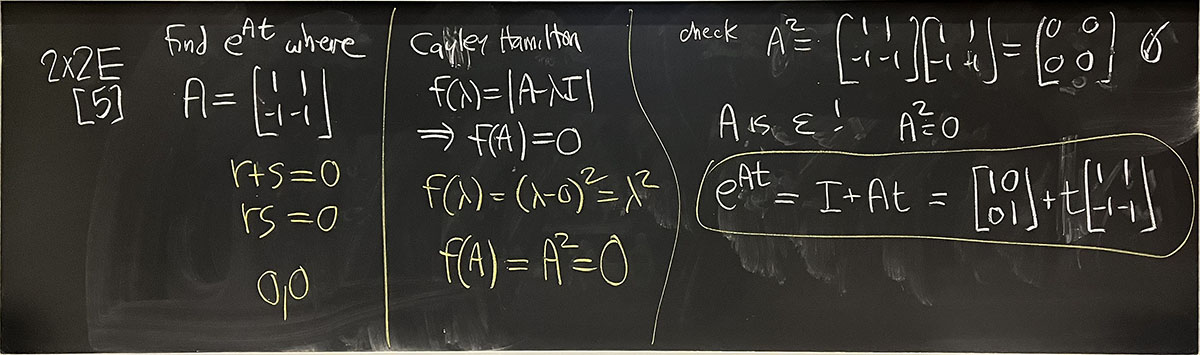 2x2E
[5]
Find e^{At} where
A = [1 1; -1 -1]
r+s=0
rs=0
0,0
Cayley Hamilton
f(λ)=|A-λI|
⇒ f(A)=0
f(λ)=(λ-0)²=λ²
f(A)=A²=0
check A²= [1 1; -1 -1][1 1; -1 -1] = [0 0; 0 0]
A is ε! A²=0
e^{At} = I+At = [1 0; 0 1]+t[1 1; -1 -1]